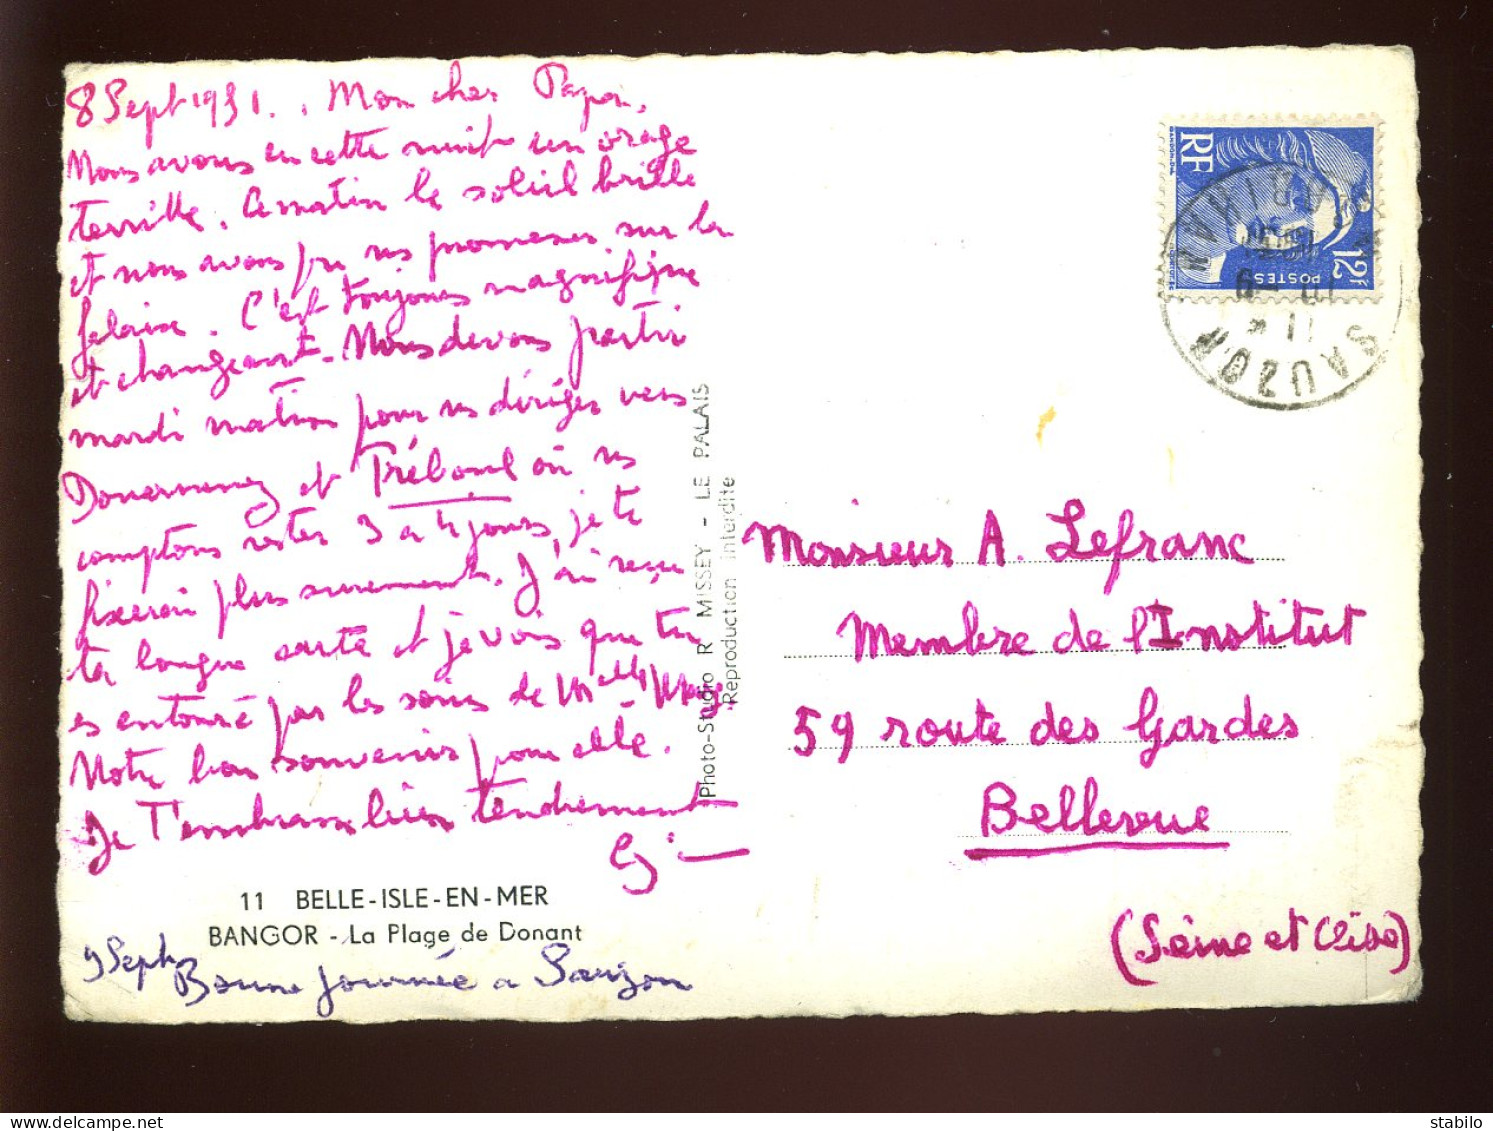 8 Sept 1951. . Mon cher Papa,
Nous avons eu cette nuit un orage
terrible. Ce matin le soleil brille
et nous avons fui ns promener sur la
falaise. C'est toujours magnifique
et changeant. Nous devons partir
mardi matin pour ns diriger vers
Douarnenez et Tréboul où ns
comptons rester 3 a 4 jours, je te
fixerai plus surement. J'ai reçu
ta longue carte et je vois que tu
es entouré par les soins de Melle
Notre bon souvenir pour elle.
Je t'embrasse bien tendrement
11 BELLE-ISLE-EN-MER
BANGOR - La Plage de Donant
9 Sept. Bonne journée a Sauzon
Photo-Studio R MISSEY - LE PALAIS
Reproduction interdite
RF
POSTES
12F
SAUZON
MORBIHAN
Monsieur A. Lefranc
Membre de l'Institut
59 route des Gardes
Bellevue
(Seine et Oise)
delcampe.net
stabilo